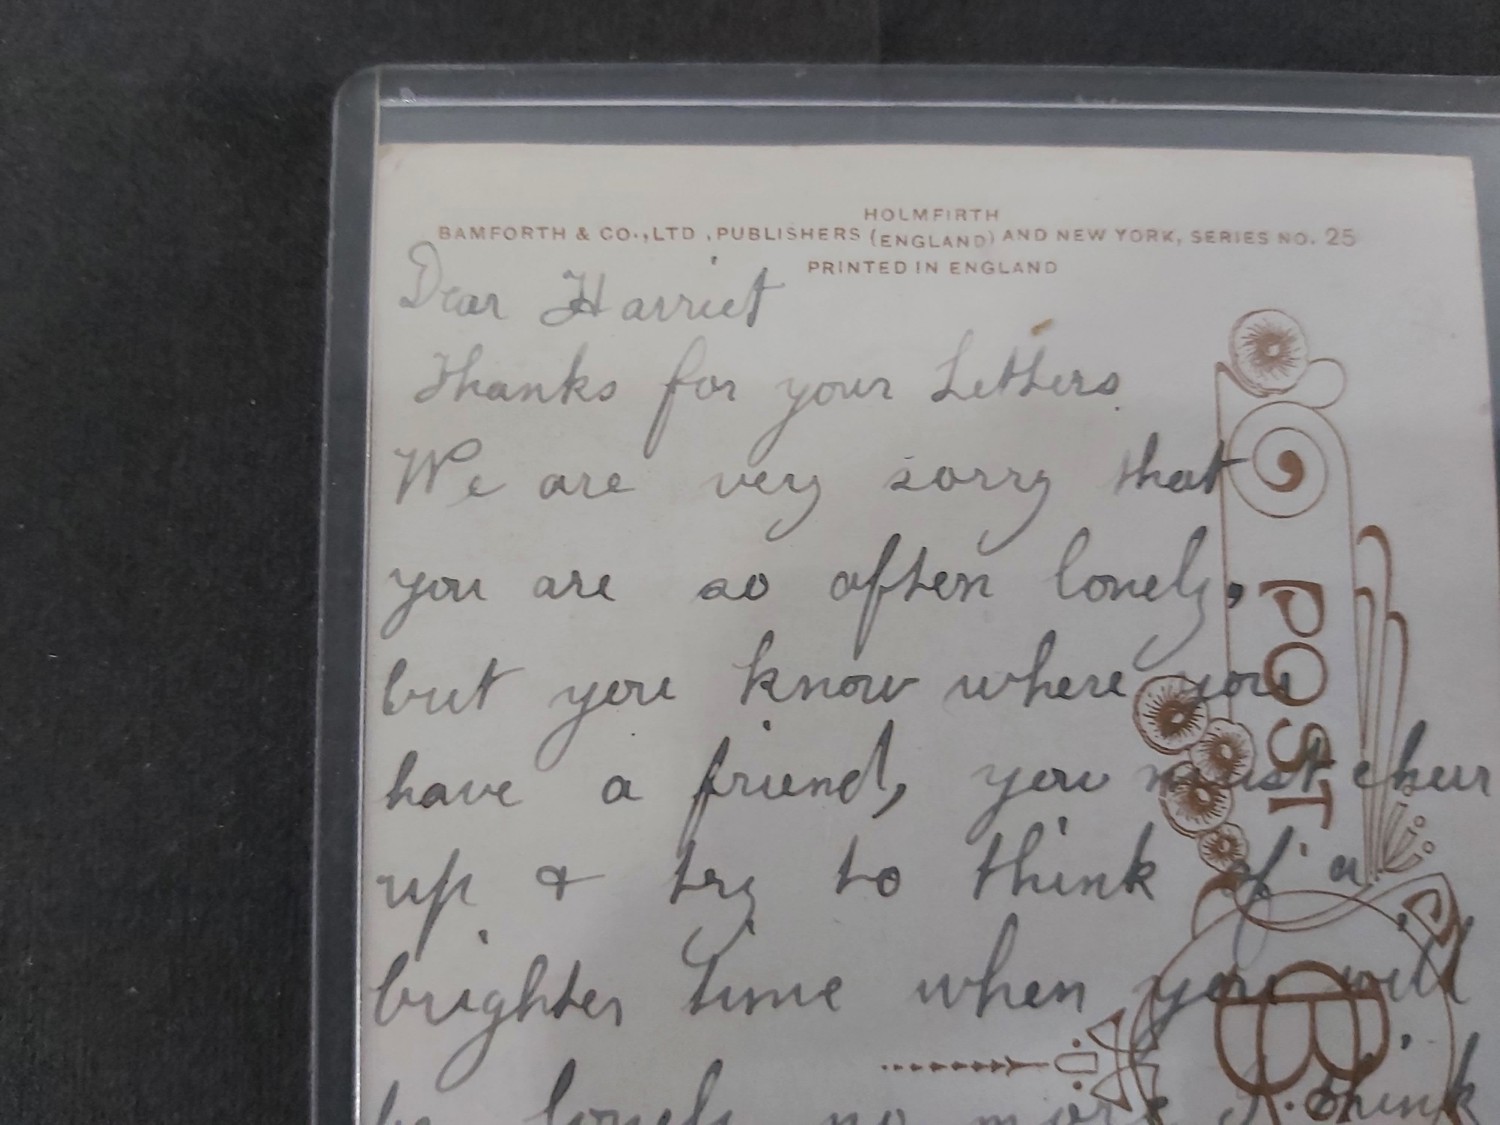 HOLMFIRTH
BAMFORTH & CO., LTD., PUBLISHERS (ENGLAND) AND NEW YORK, SERIES NO. 25
PRINTED IN ENGLAND
Dear Harriet
Thanks for your Letters
We are very sorry that
you are so often lonely,
but you know where you
have a friend, you must cheer
up & try to think of a
brighter time when you will
be lonely no more I think
POST
B